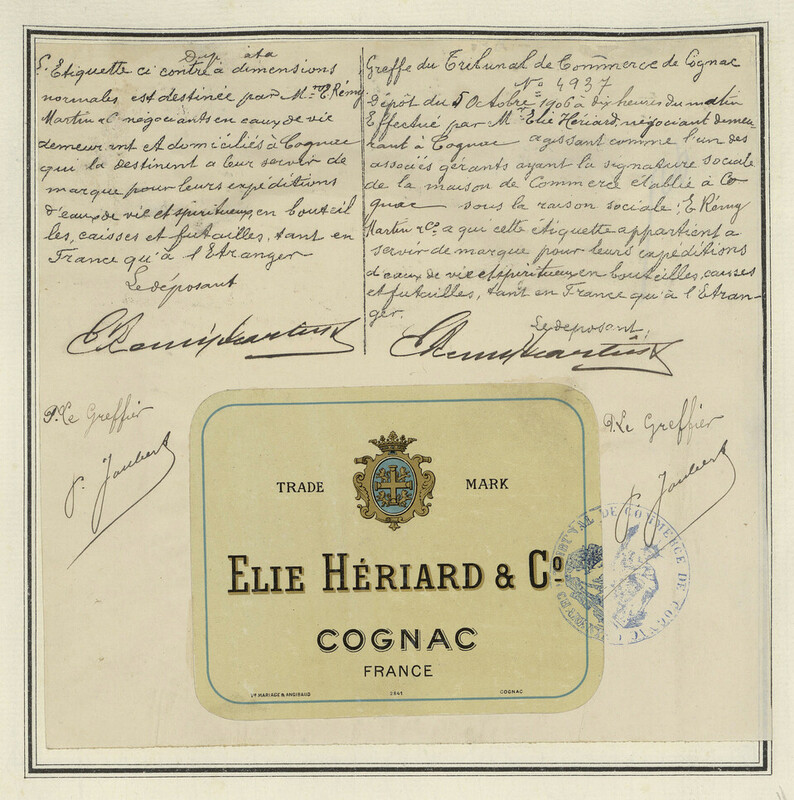 Dup ata
L'Etiquette ci contre à dimensions
normales est destinée par M. rs E. Rémy
Martin & C° négociants en eaux de vie
demeurant et domiciliés à Cognac
qui la destinent a leur servir de
marque pour leurs expéditions
d'eaux de vie et spiritueux en bouteil
les, caisses et futailles, tant en
France qu'à l'Etranger
Le déposant
E Remy Martin & C°
P. Le Greffier
P. Joubert
Greffe du Tribunal de Commerce de Cognac
N° 4937
Dépôt du 5 Octobre 1906 à dix heures du matin
Effectué par M. r Elie Hériard, négociant demeu
rant à Cognac agissant comme l'un des
associés gérants ayant la signature sociale
de la maison de Commerce établie à Co
gnac sous la raison sociale; E Rémy
Martin & C° a qui cette étiquette appartient a
servir de marque pour leurs expéditions
d'eaux de vie et spiritueux en bouteilles, caisses
et futailles, tant en France qu'à l'Etran-
ger.
Le déposant,
E Remy Martin & C°
P. Le Greffier
P. Joubert
TRADE MARK
ELIE HÉRIARD & C°
COGNAC
FRANCE
MARIAGE & ANGIBAUD 2841 COGNAC
TRIBUNAL DE COMMERCE DE COGNAC